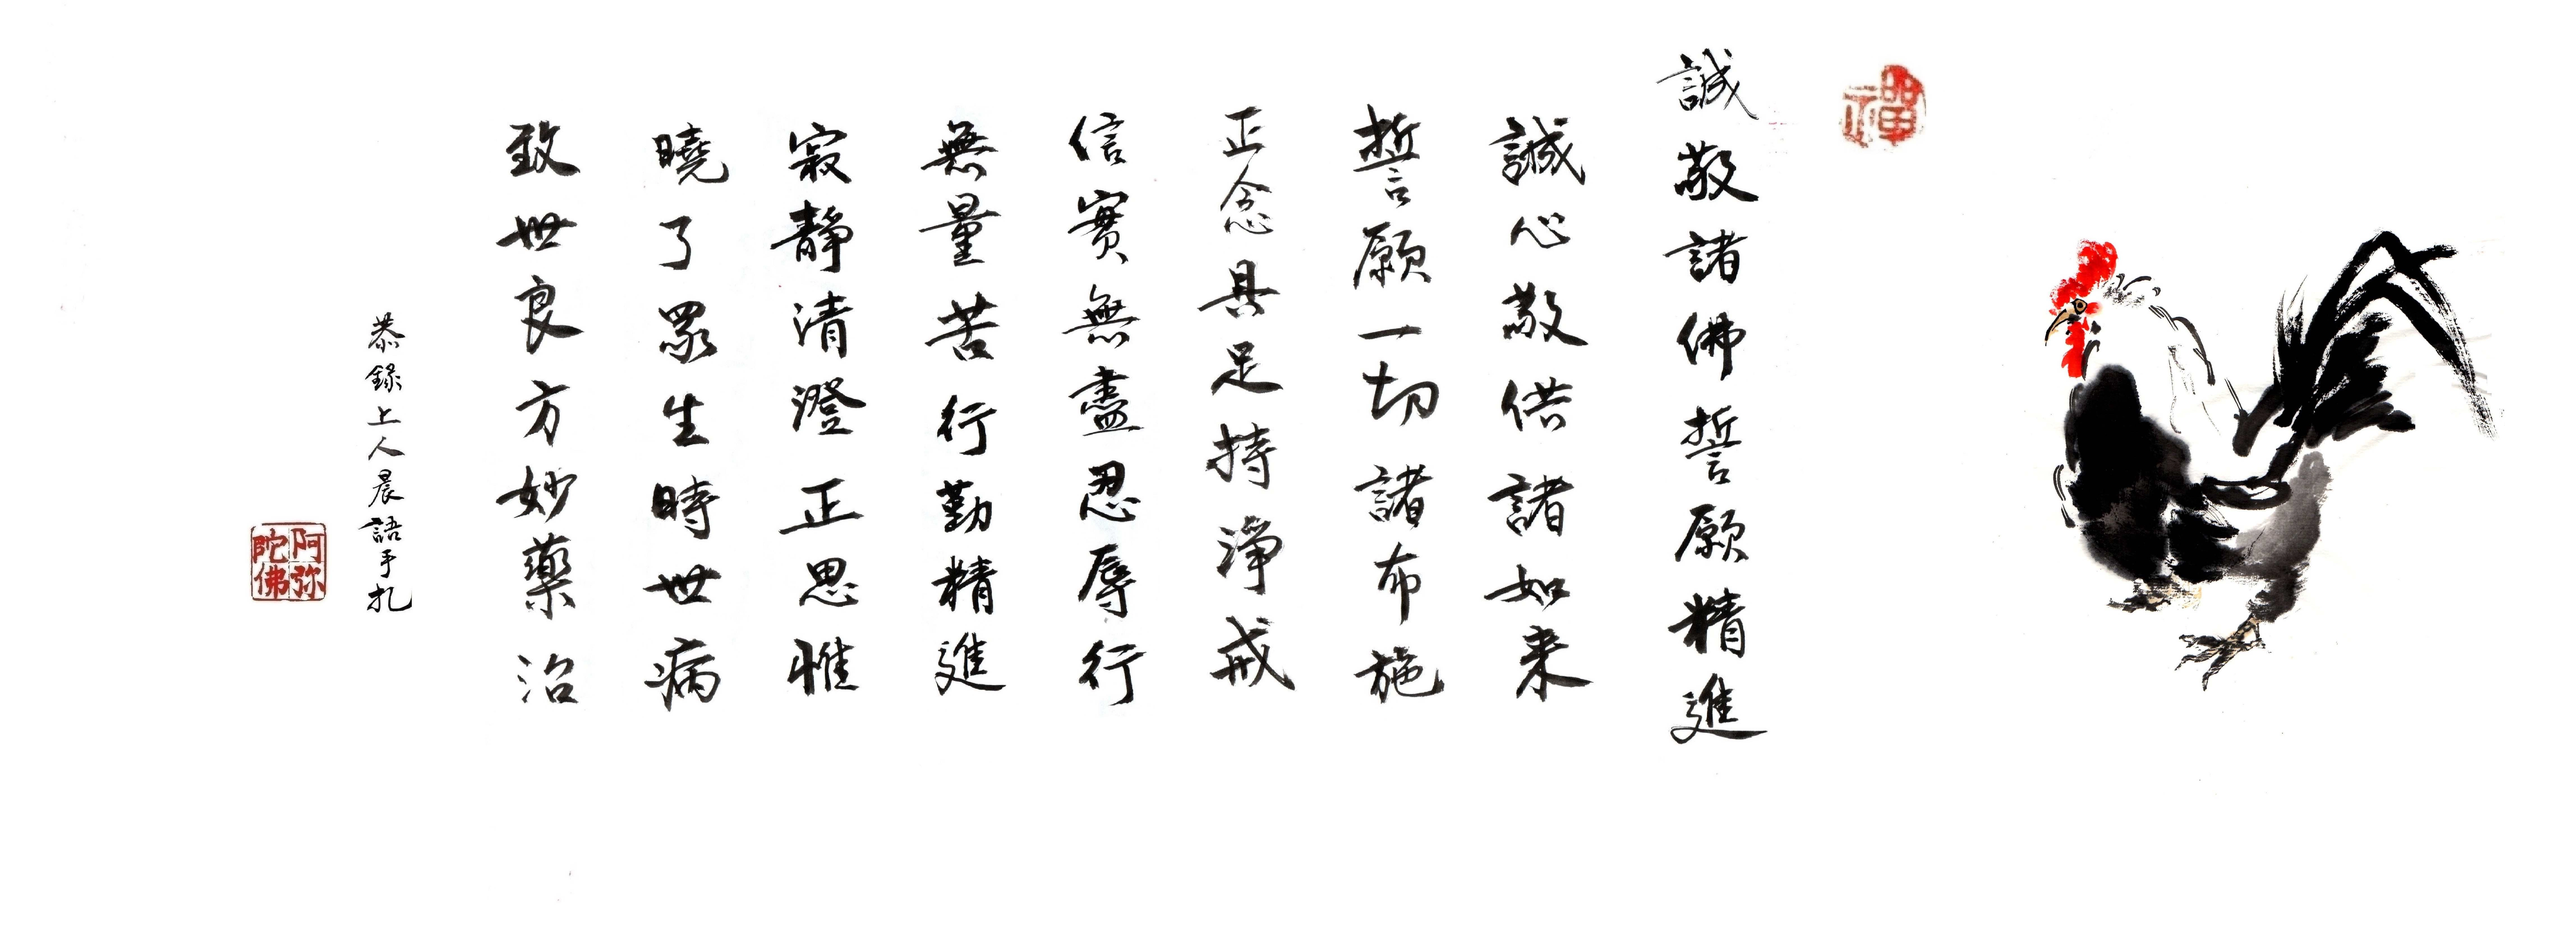 禪
誠敬諸佛誓願精進
誠心敬供諸如来
誓願一切諸布施
正念具足持淨戒
信實無盡忍辱行
無量苦行勤精進
寂靜清澄正思惟
曉了眾生時世病
致世良方妙藥治
恭錄上人晨語手扎
阿弥
陀佛